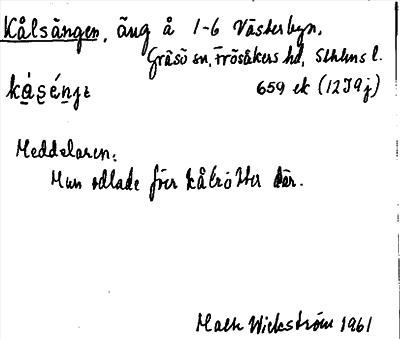 Kålsängen, äng å 1-6 Västerbyn.
Gräsö sn, Frösåkers hd, Sthlms l.
659 ek (12I9j)
Meddelaren:
Man odlade förr kålrötter där.
Wickström 1961